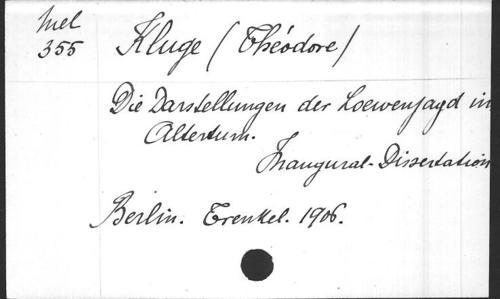 Mel
355
Kluge (Théodore)
Die Darstellungen der Loewenjagd in
Altertum.
Inaugural-Dissertation
Berlin. Trenkel. 1906.